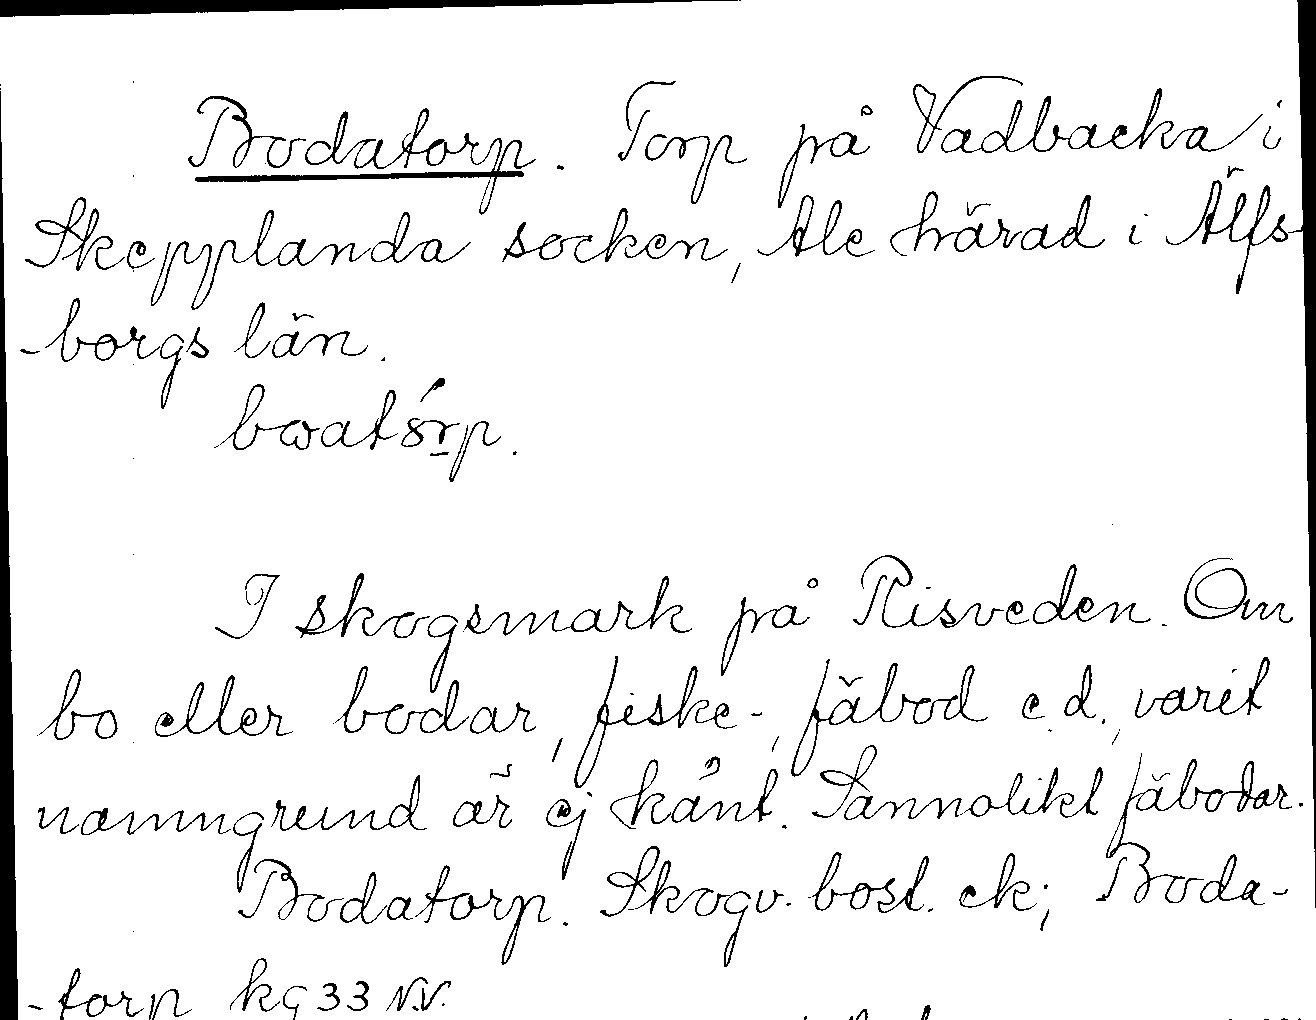 Bodatorp. Torp på Vadbacka i
Skepplanda socken, Ale härad i Älfs-
-borgs län.
I skogsmark på Risveden. Om
bo eller bodar, fiske-, fäbod e.d., varit
namngrund är ej känt. Sannolikt fäbodar.
Bodatorp. Skogv. bost. ek; Boda-
-torp kg 33 N.V.